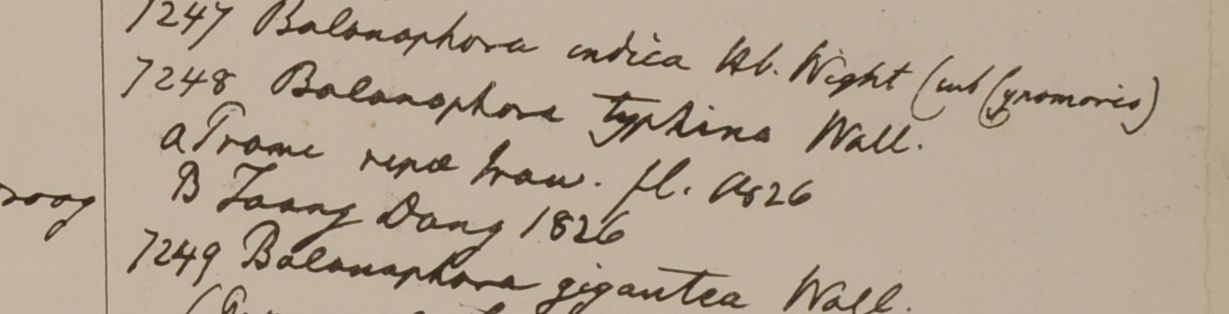 7247 Balanophora indica Hb. Wight (sub Cynomorio)
7248 Balanophora typhina Wall.
a Prome ripæ Iraw. fl. 1826
B Taong Dong 1826
7249 Balanophora gigantea Wall.